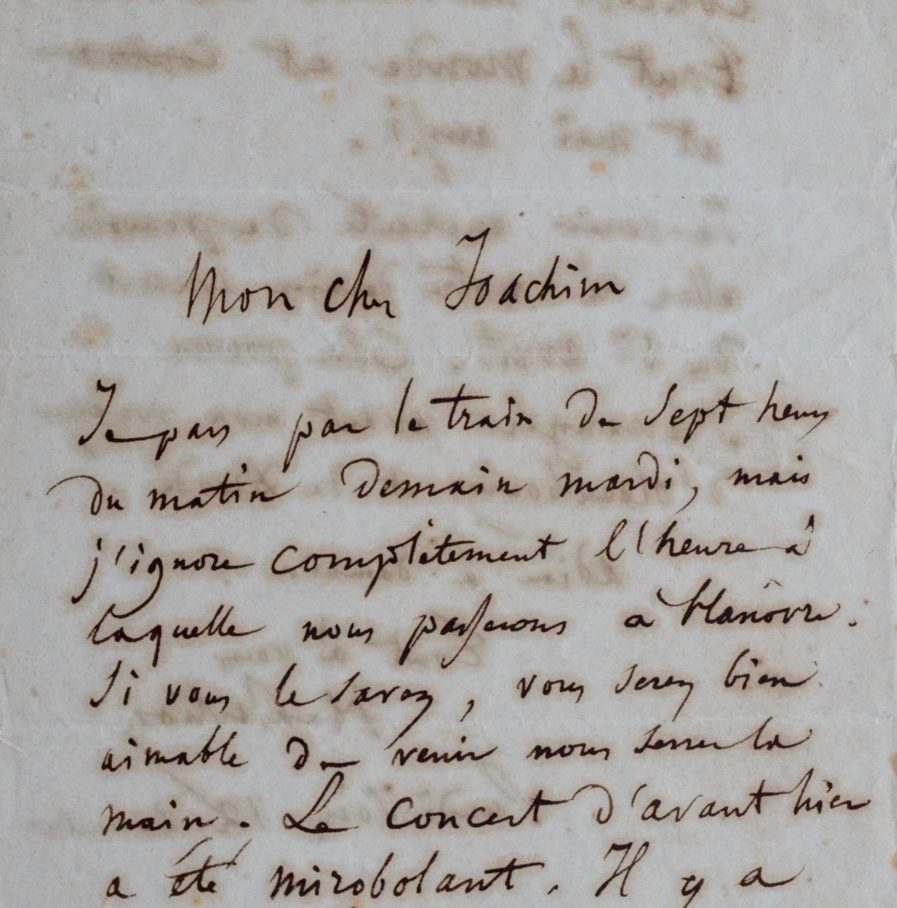 Mon cher Joachim
Je pars par le train de Sept heures
du matin demain mardi, mais
j'ignore complètement l'heure à
laquelle nous passerons à Hanôvre.
Si vous le savez, vous serez bien
aimable de venir nous serrer la
main. Le Concert d'avant hier
a été mirobolant. Il y a